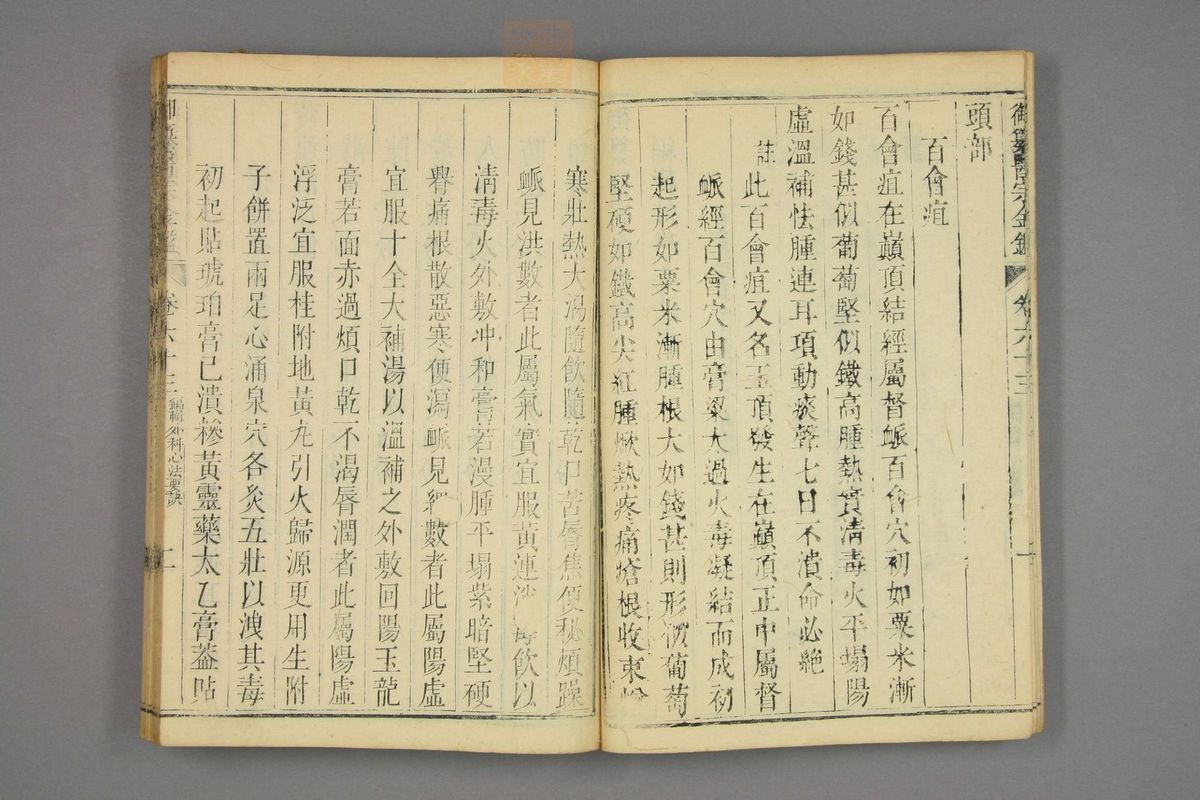 御纂醫宗金鑑 卷六十三
頭部
百會疽
百會疽在巔頂結經屬督脈百會穴初如粟米漸
如錢甚似葡萄堅似鐵高腫熱實清毒火平塌陽
虛溫補怯腫連耳項動痰聲七日不潰命必絕
註此百會疽又名玉頂發生在巔頂正中屬督
脈經百會穴由膏粱太過火毒凝結而成初
起形如粟米漸腫根大如錢甚則形似葡萄
堅硬如鐵高尖紅腫焮熱疼痛瘡根收束
寒壯熱大渴隨飲隨乾口苦唇焦便秘煩躁
脈見洪數者此屬氣實宜服黃連飲以
清毒火外敷冲和膏若漫腫平塌紫暗堅硬
痛根散惡寒便瀉脈見細數者此屬陽虛
宜服十全大補湯以溫補之外敷回陽玉龍
膏若面赤過煩口乾不渴唇潤者此屬陽虛
浮泛宜服桂附地黃丸引火歸源更用生附
子餅置兩足心涌泉穴各灸五壯以洩其毒
初起貼琥珀膏已潰摻黃靈藥太乙膏蓋貼
卷六十三 編輯外科心法要訣 二